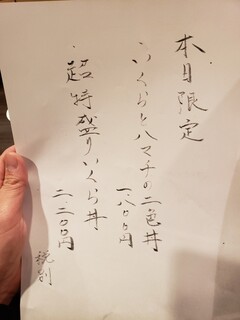 本日限定
・いくらとハマチの二色丼
一、八〇〇円
・超特盛りいくら丼
二、二〇〇円
税別